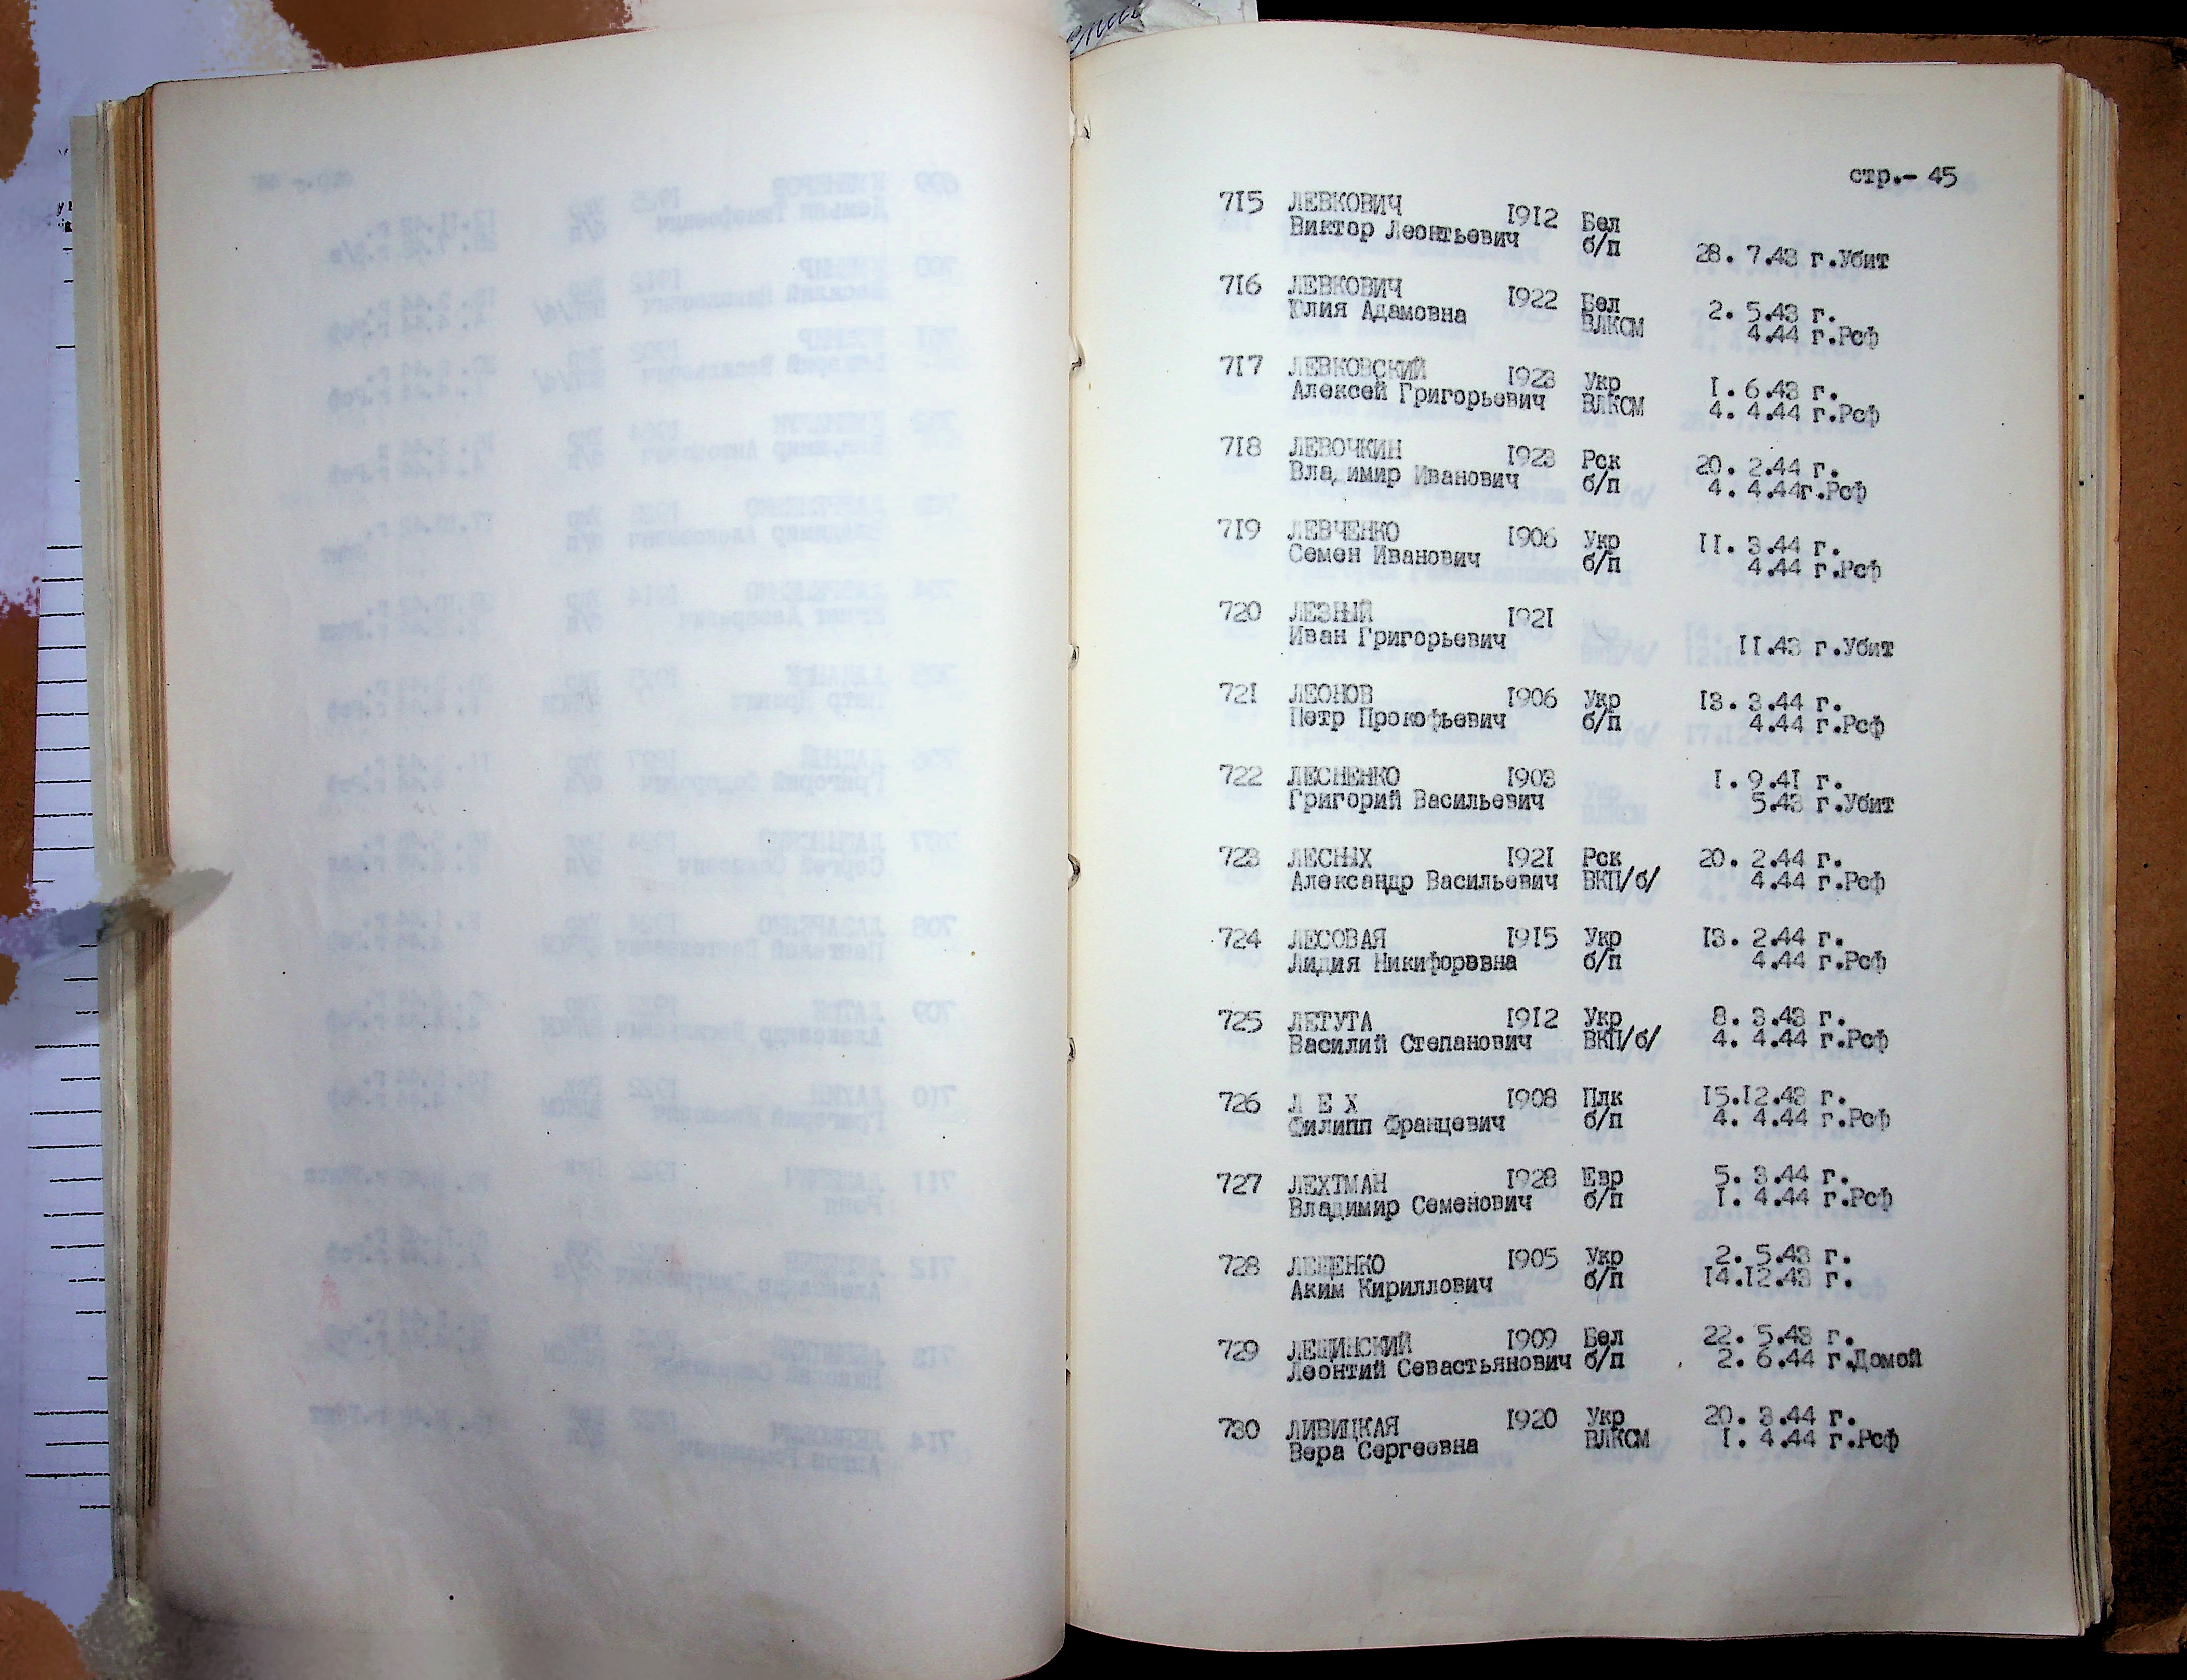 стр.- 45
715 ЛЕВКОВИЧ 1912 Бел
Виктор Леонтьевич б/п 28. 7.43 г.Убит
716 ЛЕВКОВИЧ 1922 Бел 2. 5.43 г.
Юлия Адамовна ВЛКСМ 4.44 г.Рсф
717 ЛЕВКОВСКИЙ 1923 Укр 1. 6.43 г.
Алексей Григорьевич ВЛКСМ 4. 4.44 г.Рсф
718 ЛЕВОЧКИН 1923 Рск 20. 2.44 г.
Владимир Иванович б/п 4. 4.44г.Рсф
719 ЛЕВЧЕНКО 1906 Укр 11. 3.44 г.
Семен Иванович б/п 4.44 г.Рсф
720 ЛЕЗНЫЙ 1921
Иван Григорьевич 11.43 г.Убит
721 ЛЕОНОВ 1906 Укр 13. 3.44 г.
Петр Прокофьевич б/п 4.44 г.Рсф
722 ЛЕСНЕНКО 1903 1. 9.41 г.
Григорий Васильевич 5.43 г.Убит
723 ЛЕСНЫХ 1921 Рск 20. 2.44 г.
Александр Васильевич ВКП/б/ 4.44 г.Рсф
724 ЛЕСОВАЯ 1915 Укр 13. 2.44 г.
Лидия Никифоровна б/п 4.44 г.Рсф
725 ЛЕТУТА 1912 Укр 8. 3.43 г.
Василий Степанович ВКП/б/ 4. 4.44 г.Рсф
726 Л Е Х 1908 Плк 15.12.43 г.
Филипп Францевич б/п 4. 4.44 г.Рсф
727 ЛЕХТМАН 1928 Евр 5. 3.44 г.
Владимир Семенович б/п 1. 4.44 г.Рсф
728 ЛЕЩЕНКО 1905 Укр 2. 5.43 г.
Аким Кириллович б/п 14.12.43 г.
729 ЛЕЩИНСКИЙ 1909 Бел 22. 5.43 г.
Леонтий Севастьянович б/п 2. 6.44 г.Домой
730 ЛИВИЦКАЯ 1920 Укр 20. 3.44 г.
Вера Сергеевна ВЛКСМ 1. 4.44 г.Рсф